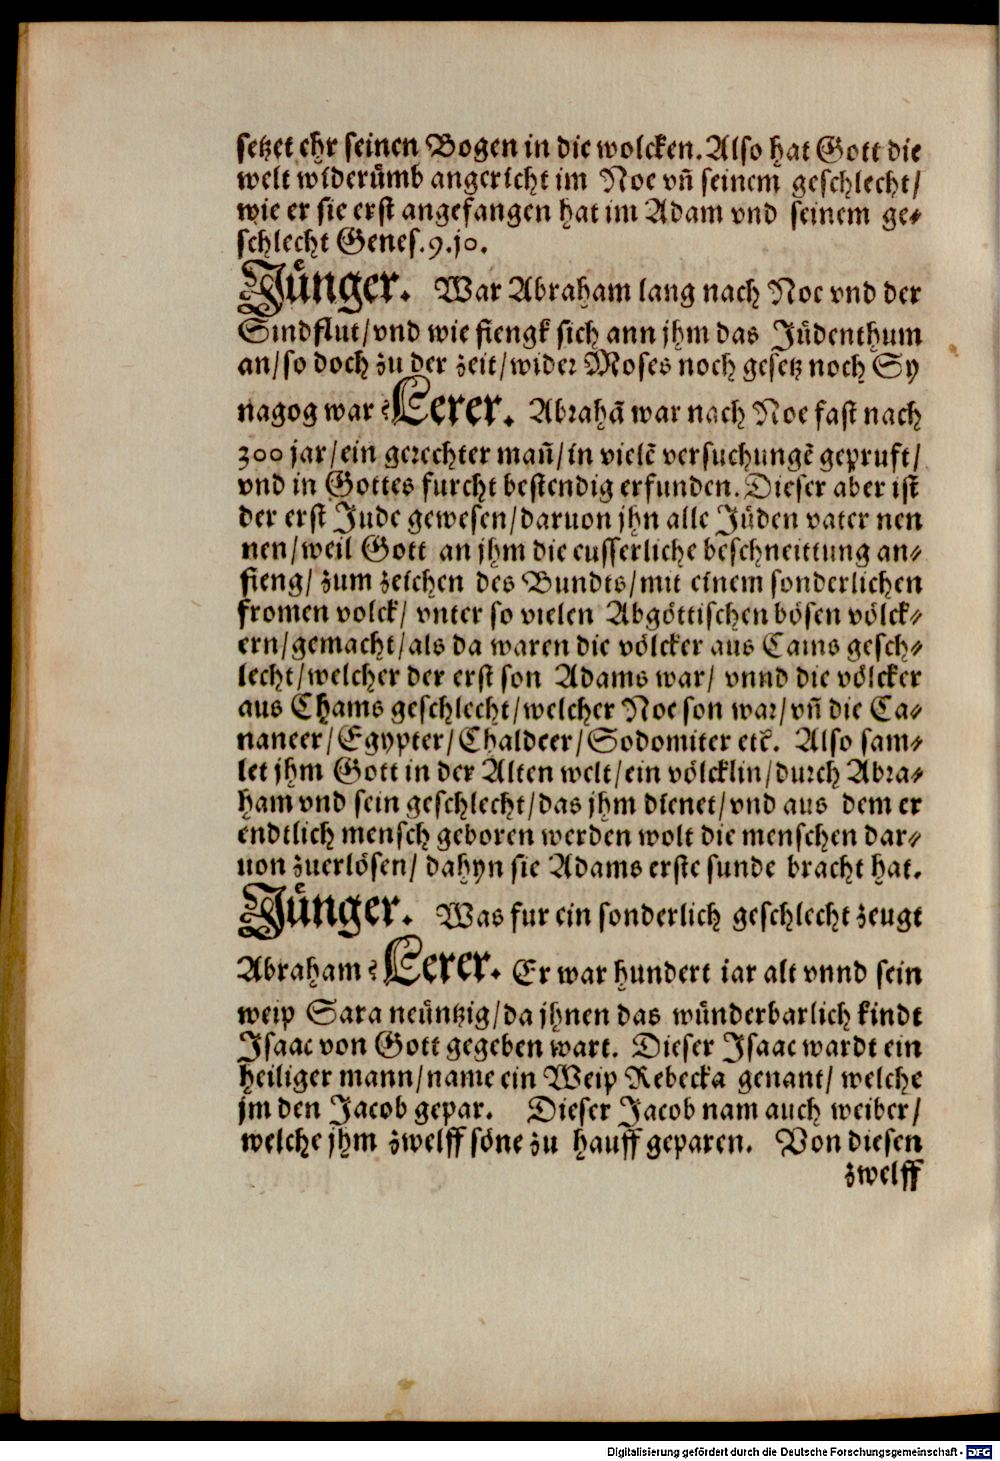 setzet ehr seinen Bogen in die wolcken. Also hat Gott die
welt widerümb angericht im Noe vñ seinem geschlecht/
wie er sie erst angefangen hat im Adam vnd seinem ge⸗
schlecht Genes. 9. jo.
Jünger. War Abraham lang nach Noe vnd der
Sindflut/vnd wie fiengk sich ann jhm das Jüdenthum
an/so doch zu der zeit/wider Moses noch gesetz noch Sy
nagog war? Lerer. Abrahã war nach Noe fast nach
300 jar/ein gerechter mañ/in vielẽ versuchungẽ gepruft/
vnd in Gottes furcht bestendig erfunden. Dieser aber ist
der erst Jude gewesen/daruon jhn alle Jüden vater nen
nen/weil Gott an jhm die eusserliche beschneittung an⸗
fieng/ zum zeichen des Bundts/mit einem sonderlichen
fromen volck/ vnter so vielen Abgöttischen bösen völck⸗
ern/gemacht/als da waren die völcker aus Cains gesch⸗
lecht/welcher der erst son Adams war/ vnnd die völcker
aus Chams geschlecht/welcher Noe son war/vñ die Ca⸗
naneer/Egypter/Chaldeer/Sodomiter etc. Also sam⸗
let jhm Gott in der Alten welt/ein völcklin/durch Abra⸗
ham vnd sein geschlecht/das jhm dienet/vnd aus dem er
endtlich mensch geboren werden wolt die menschen dar⸗
uon zuerlösen/ dahyn sie Adams erste sunde bracht hat.
Jünger. Was fur ein sonderlich geschlecht zeugt
Abraham? Lerer. Er war hundert iar alt vnnd sein
weip Sara neüntzig/da jhnen das wünderbarlich kindt
Isaac von Gott gegeben wart. Dieser Isaac wardt ein
heiliger mann/name ein Weip Rebecka genant/ welche
jm den Jacob gepar. Dieser Jacob nam auch weiber/
welche jhm zwelff söne zu hauff geparen. Von diesen
zwelff
Digitalisierung gefördert durch die Deutsche Forschungsgemeinschaft - DFG